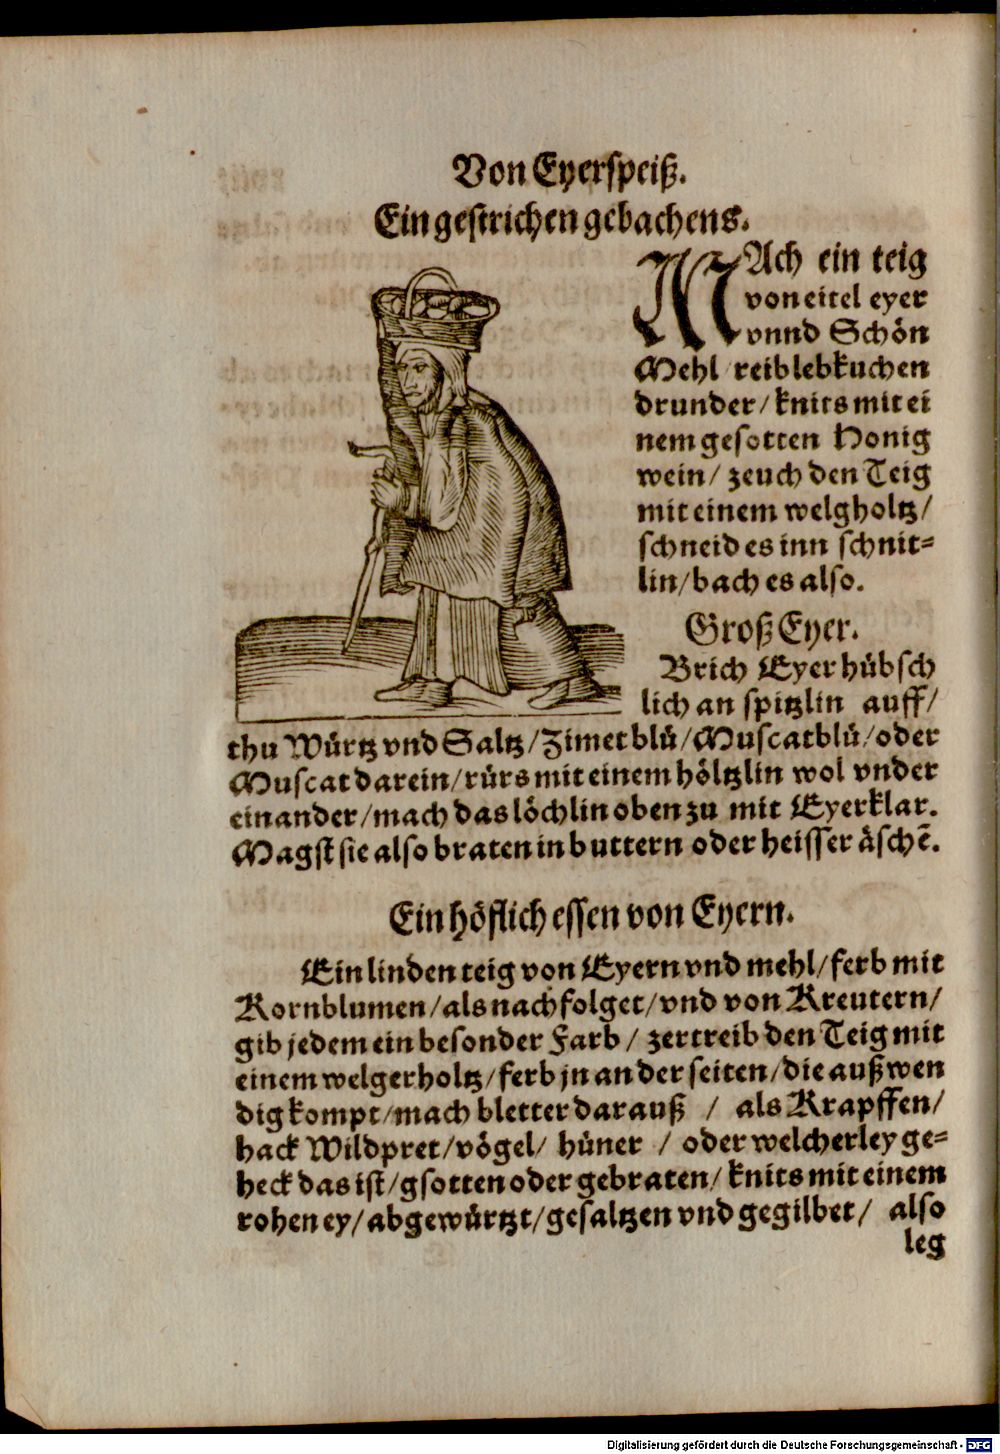 Von Eyerspeiß.
Ein gestrichen gebachens.
MAch ein teig
von eitel eyer
vnnd Schön
Mehl reib lebkuchen
drunder/ knits mit ei
nem gesotten Honig
wein/ zeuch den Teig
mit einem welgholtz/
schneid es inn schnit⸗
lin/ bach es also.
Groß Eyer.
Brich Eyer hübsch
lich an spitzlin auff/
thu Würtz vnd Saltz/ Zimetblü/ Muscatblü/ oder
Muscat darein/ rürs mit einem höltzlin wol vnder
einander/ mach das löchlin oben zu mit Eyerklar.
Magst sie also braten in buttern oder heisser äschē.
Ein höflich essen von Eyern.
Ein linden teig von Eyern vnd mehl/ ferb mit
Kornblumen/ als nachfolget/ vnd von Kreutern/
gib jedem ein besonder Farb/ zertreib den Teig mit
einem welgerholtz/ ferb jn an der seiten/ die außwen
dig kompt/ mach bletter darauß / als Krapffen/
hack Wildpret/ vögel/ hüner / oder welcherley ge⸗
heck das ist/ gsotten oder gebraten/ knits mit einem
rohen ey/ abgewürtzt/ gesaltzen vnd gegilbet/ also
leg
Digitalisierung gefördert durch die Deutsche Forschungsgemeinschaft - DFG